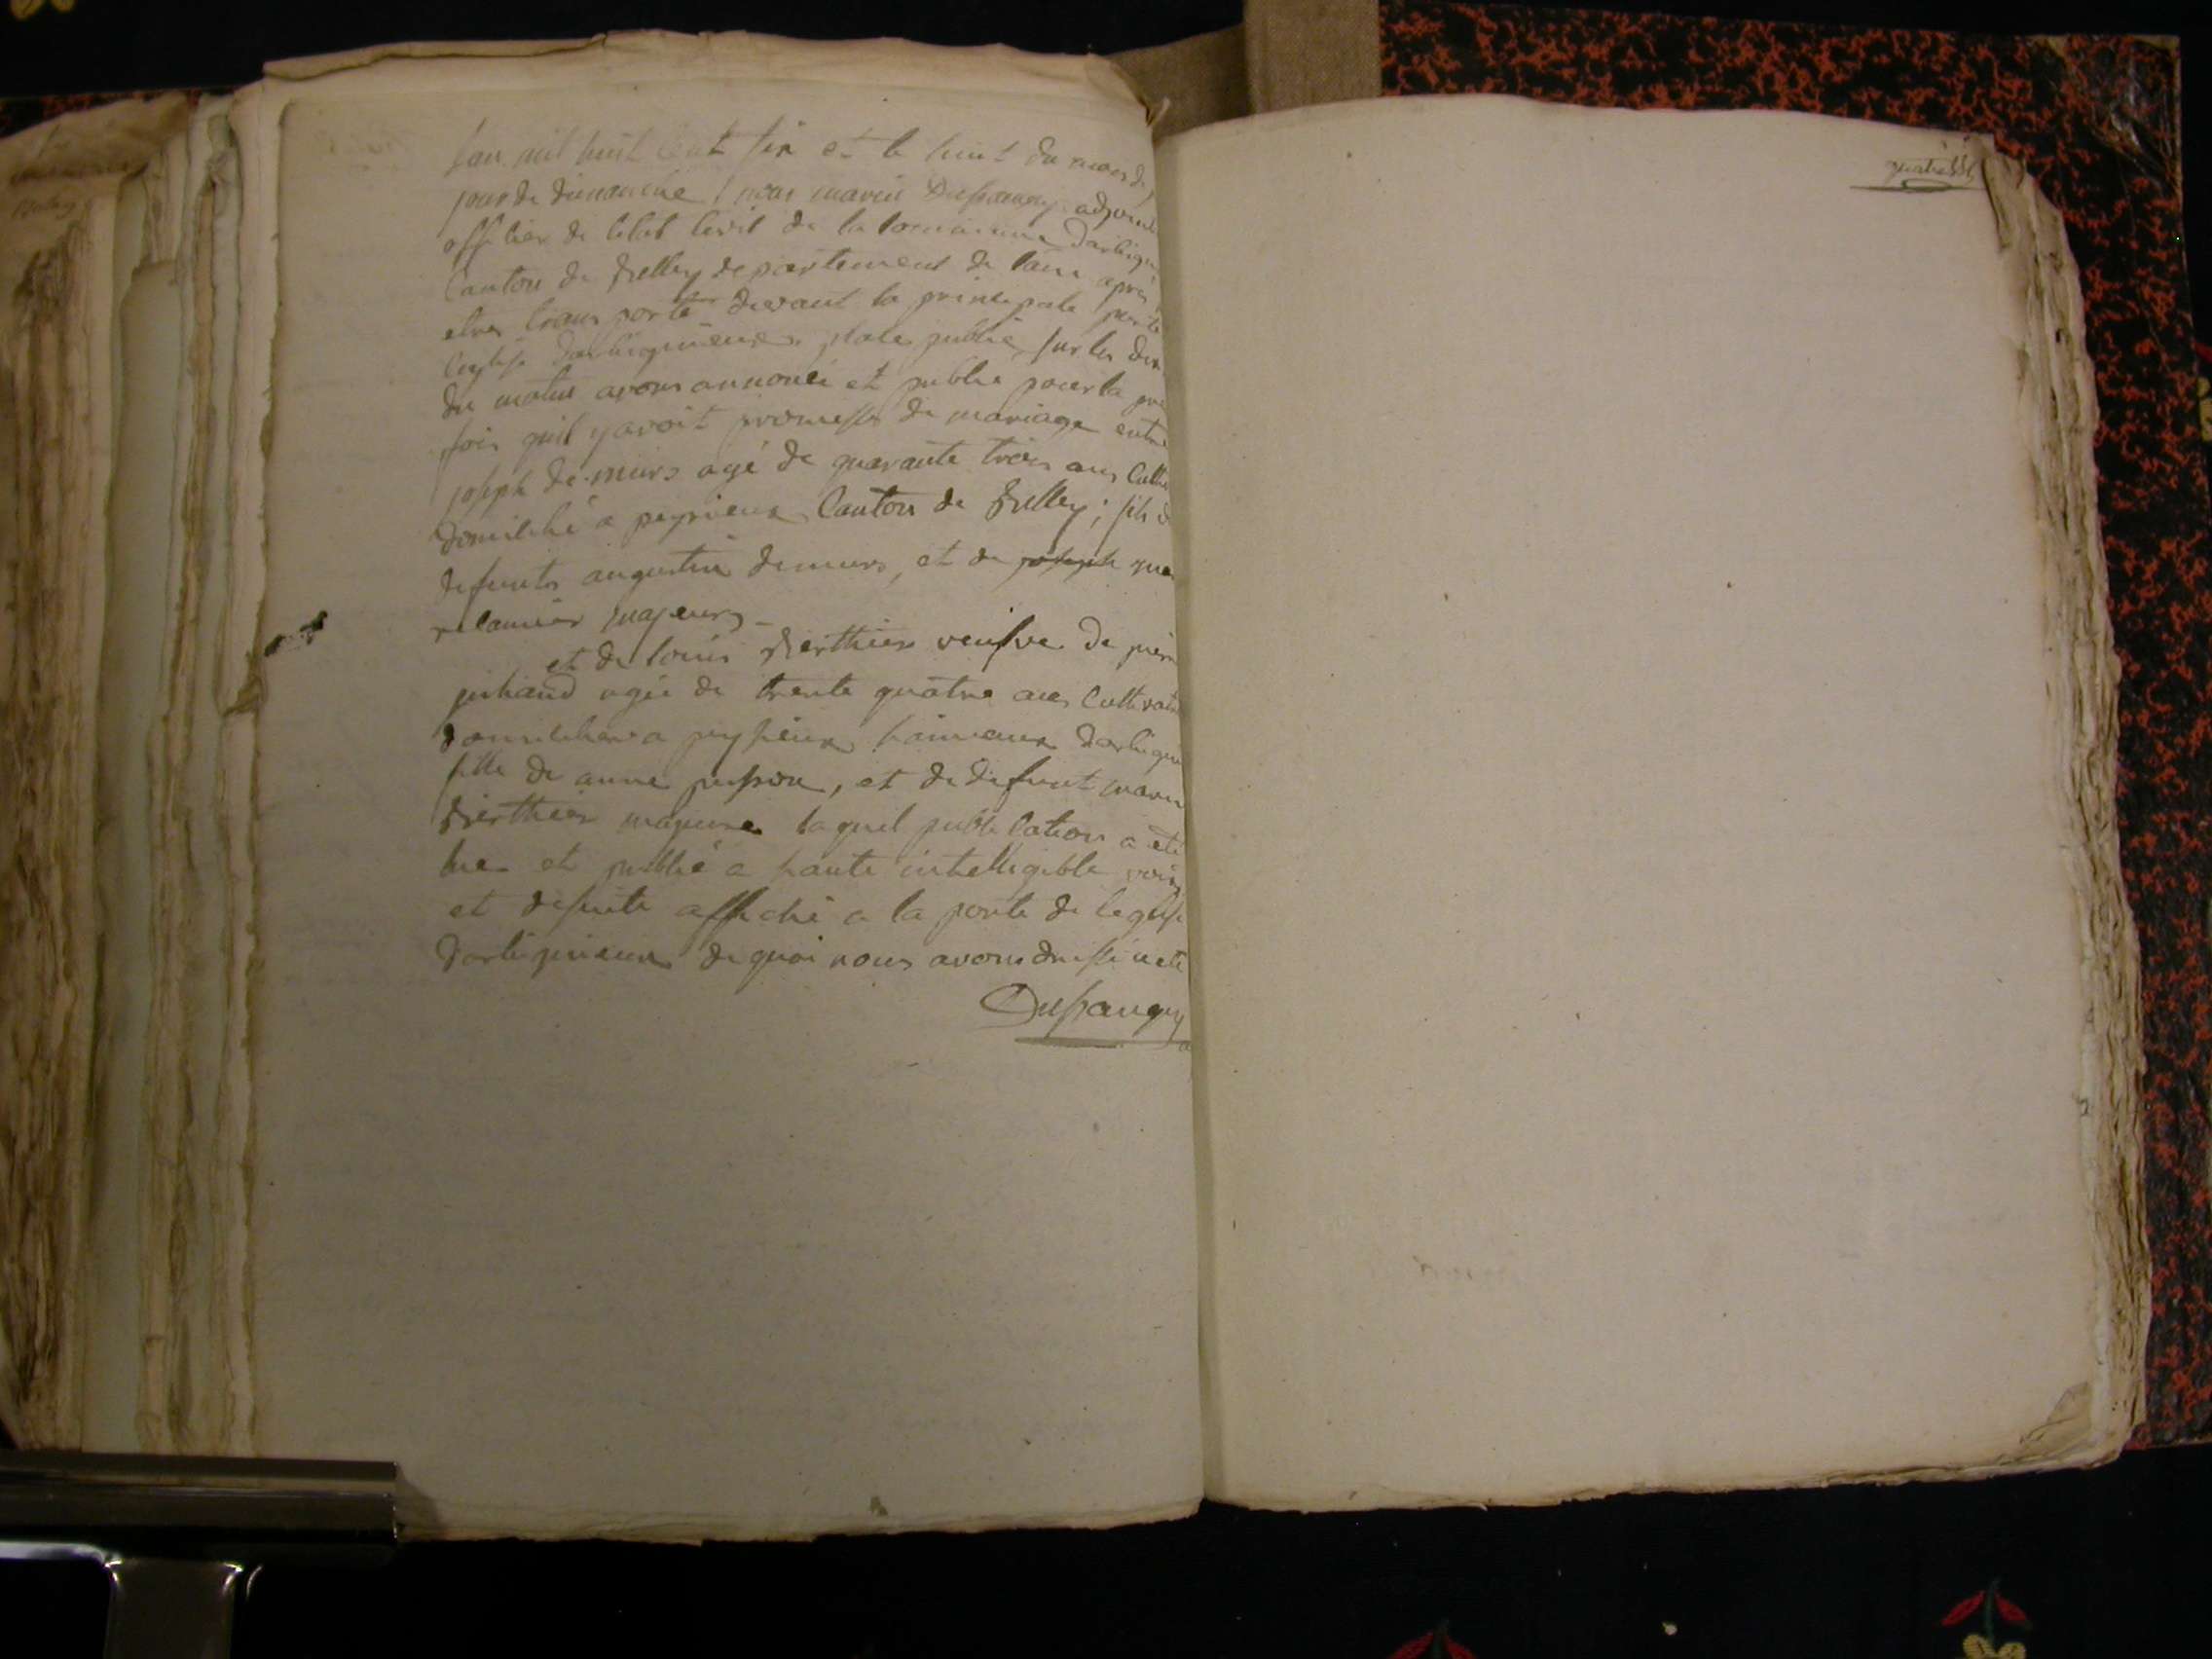 lan mil huit Cent six et le huit du mois de
jour de dimanche nous marin Dussaugey adjoint
officier de letat Civil de la Commune darbigni
Canton de Belley departement de lain apres
etre transporté devant la principale porte
leglise darbignieux place public, sur les dix
du matin avons annoncé et publié pour la pre
fois quil y avoit promesse de mariage entre
joseph de-murs agé de quarante trois ans Cultiv
domicilié a peyrieux Canton de Belley; fils de
defunts augustin demurs, et de joseph
majeurs
et de louis Berthier veufve de pierre
agée de trente quatre ans Cultivatr
domiciliere a peysieux hameaux darbigni
fille de anne, et de defunt marin
Berthier majeure laquel publication a eté
lue et publié a haute intelligible voix
et desuite affiché a la porte de leglise
darbignieux de quoi nous avons dressé acte
Dussaugey